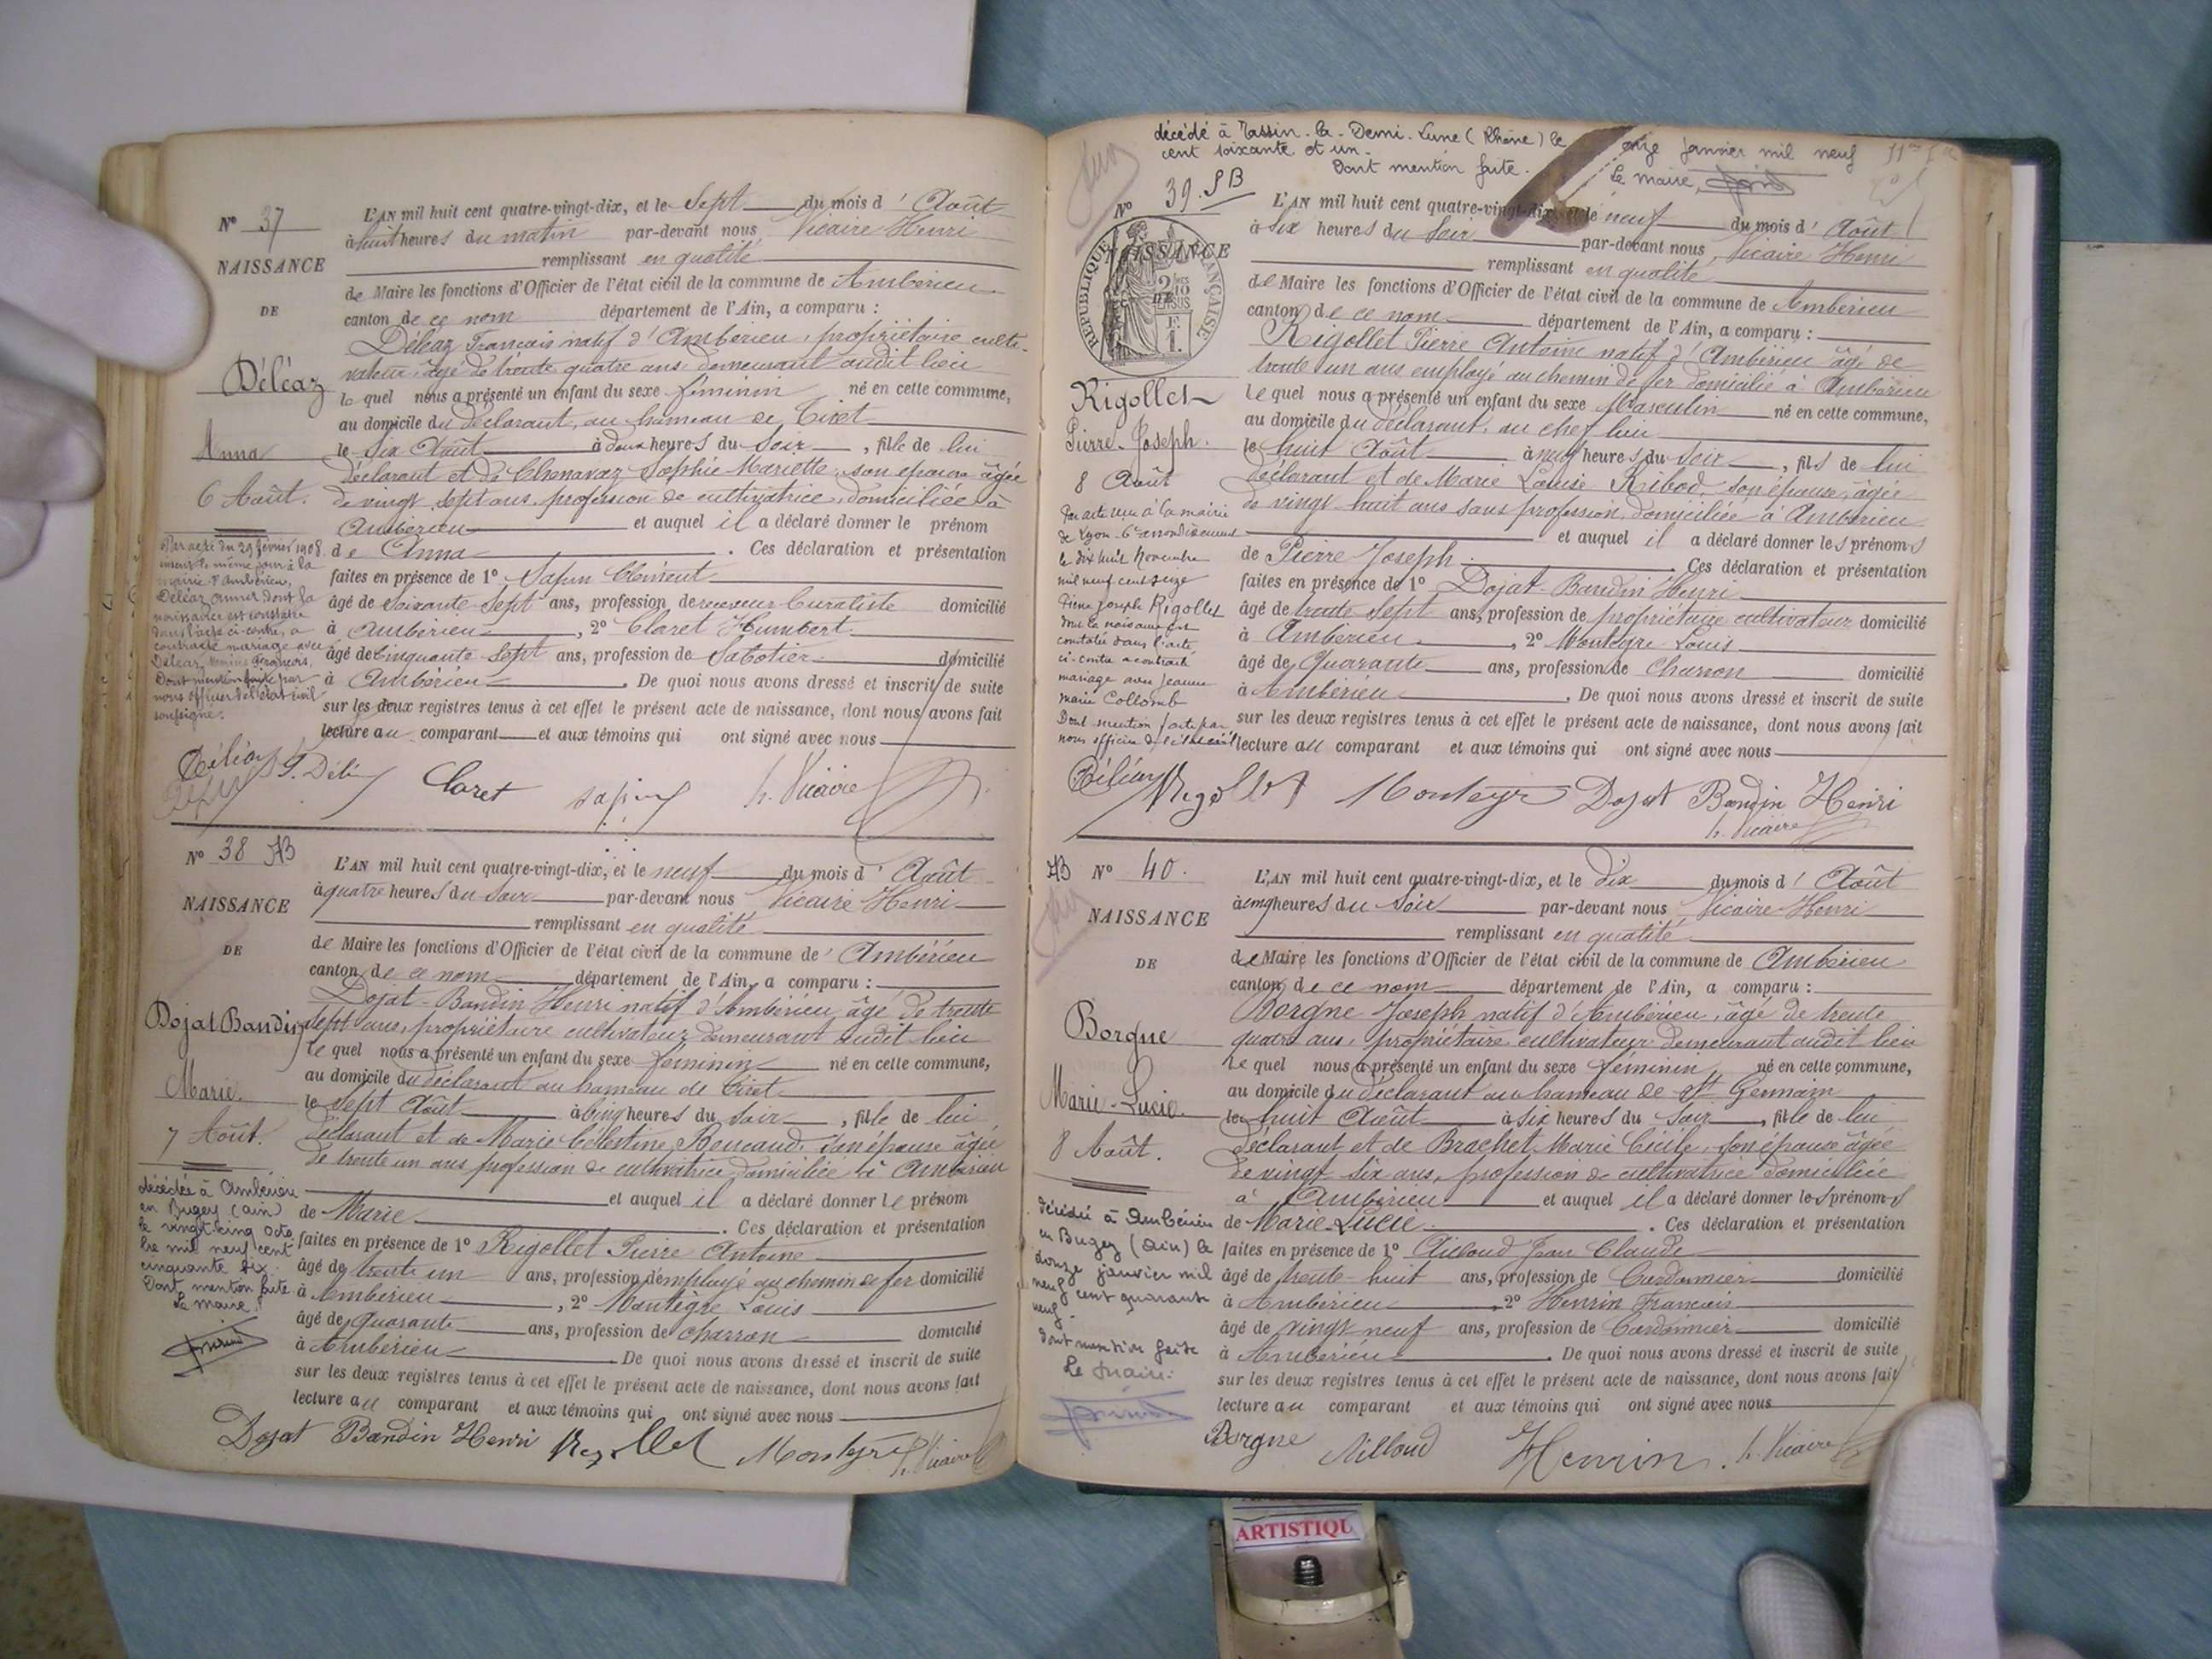 N° 37
NAISSANCE
DE
Déléaz
Anna
6 Août.
Par acte du 29 février 1908
inscrit le même jour à la
mairie d'Ambérieu,
Déléaz Anna dont la
naissance est constatée
dans l'acte ci-contre, a
contracté mariage avec
Déléaz François.
Dont mention faite par
nous officier de l'état civil
soussigné.
L'AN mil huit cent quatre-vingt-dix, et le Sept du mois d'Août
à huit heures du matin par-devant nous Vicaire Henri
remplissant en qualité
de Maire les fonctions d'Officier de l'état civil de la commune de Ambérieu
canton de ce nom département de l'Ain, a comparu :
Déléaz François natif d'Ambérieu, propriétaire culti-
vateur, âgé de trente quatre ans demeurant audit lieu
le quel nous a présenté un enfant du sexe féminin né en cette commune,
au domicile du déclarant, au hameau de Tiret
le Six Août à deux heures du Soir, fille de lui
déclarant et de Chenavaz Sophie Mariette son épouse âgée
de vingt sept ans, profession de cultivatrice, domiciliée à
Ambérieu et auquel il a déclaré donner le prénom
de Anna. Ces déclaration et présentation
faites en présence de 1° Sapin Clément
âgé de Soixante Sept ans, profession de receveur buraliste domicilié
à Ambérieu, 2° Claret Humbert
âgé de Cinquante Sept ans, profession de Sabotier domicilié
à Ambérieu. De quoi nous avons dressé et inscrit de suite
sur les deux registres tenus à cet effet le présent acte de naissance, dont nous avons fait
lecture au comparant et aux témoins qui ont signé avec nous
Déléaz Claret Sapin h. Vicaire
N° 38 AB
NAISSANCE
DE
Dojat Bandin
Marie.
7 Août.
décédée à Ambérieu
en Bugey (ain)
le vingt cinq octo
bre mil neuf cent
cinquante six.
Dont mention faite
Le maire.
L'AN mil huit cent quatre-vingt-dix, et le neuf du mois d'Août
à quatre heures du Soir par-devant nous Vicaire Henri
remplissant en qualité
de Maire les fonctions d'Officier de l'état civil de la commune de Ambérieu
canton de ce nom département de l'Ain, a comparu :
Dojat-Bandin Henri natif d'Ambérieu âgé de trente
sept ans, propriétaire cultivateur demeurant audit lieu
le quel nous a présenté un enfant du sexe féminin né en cette commune,
au domicile du déclarant au hameau de Tiret
le Sept Août à cinq heures du Soir, fille de lui
déclarant et de Marie Célestine Roucaud, son épouse âgée
de trente un ans profession de cultivatrice domiciliée à Ambérieu
et auquel il a déclaré donner le prénom
de Marie. Ces déclaration et présentation
faites en présence de 1° Rigollet Pierre Antoine
âgé de trente un ans, profession d'employé au chemin de fer domicilié
à Ambérieu, 2° Montègre Louis
âgé de quarante ans, profession de charron domicilié
à Ambérieu De quoi nous avons dressé et inscrit de suite
sur les deux registres tenus à cet effet le présent acte de naissance, dont nous avons fait
lecture au comparant et aux témoins qui ont signé avec nous
Dojat Bandin Henri Rigollet Monteyre h. Vicaire
décédé à Tassin-la-Demi-Lune (Rhône) le onze janvier mil neuf
cent soixante et un.
Dont mention faite. Le Maire,
N° 39. SB
NAISSANCE
DE
RÉPUBLIQUE FRANÇAISE
Rigollet
Pierre-Joseph.
8 Août
Par acte reçu à la mairie
de Lyon 6e arrondissement
le dix huit Novembre
mil neuf cent seize
Pierre Joseph Rigollet
dont la naissance est
constatée dans l'acte
ci-contre a contracté
mariage avec Jeanne
Marie Collomb
Dont mention faite par
nous officier de l'état civil
L'AN mil huit cent quatre-vingt-dix, et le neuf du mois d'Août
à Six heures du Soir par-devant nous Vicaire Henri
remplissant en qualité
de Maire les fonctions d'Officier de l'état civil de la commune de Ambérieu
canton de ce nom département de l'Ain, a comparu :
Rigollet Pierre Antoine natif d'Ambérieu âgé de
trente un ans employé au chemin de fer domicilié à Ambérieu
le quel nous a présenté un enfant du sexe Masculin né en cette commune,
au domicile du déclarant, au chef lieu
le huit Août à neuf heures du Soir, fils de lui
déclarant et de Marie Louise Ribod, son épouse, âgée
de vingt huit ans sans profession, domiciliée à Ambérieu
et auquel il a déclaré donner les prénoms
de Pierre Joseph. Ces déclaration et présentation
faites en présence de 1° Dojat-Bandin Henri
âgé de trente Sept ans, profession de propriétaire cultivateur domicilié
à Ambérieu, 2° Monteyre Louis
âgé de Quarante ans, profession de Charron domicilié
à Ambérieu. De quoi nous avons dressé et inscrit de suite
sur les deux registres tenus à cet effet le présent acte de naissance, dont nous avons fait
lecture au comparant et aux témoins qui ont signé avec nous
Déléaz Rigollet Monteyre Dojat Bandin Henri
h. Vicaire
AB N° 40.
NAISSANCE
DE
Borgne
Marie-Lucie.
8 Août.
décédée à Ambérieu
en Bugey (Ain) le
douze janvier mil
neuf cent quarante
neuf.
Dont mention faite
Le Maire.
L'AN mil huit cent quatre-vingt-dix, et le dix du mois d'Août
à cinq heures du Soir par-devant nous Vicaire Henri
remplissant en qualité
de Maire les fonctions d'Officier de l'état civil de la commune de Ambérieu
canton de ce nom département de l'Ain, a comparu :
Borgne Joseph natif d'Ambérieu, âgé de trente
quatre ans, propriétaire cultivateur demeurant audit lieu
le quel nous a présenté un enfant du sexe féminin né en cette commune,
au domicile du déclarant au hameau de St Germain
le huit Août à Six heures du Soir, fille de lui
déclarant et de Brachet Marie Cécile, son épouse âgée
de vingt Six ans, profession de cultivatrice domiciliée
à Ambérieu et auquel il a déclaré donner les prénoms
de Marie-Lucie. Ces déclaration et présentation
faites en présence de 1° Ailloud Jean Claude
âgé de trente-huit ans, profession de Cordonnier domicilié
à Ambérieu 2° Henrin François
âgé de vingt neuf ans, profession de Cordonnier domicilié
à Ambérieu. De quoi nous avons dressé et inscrit de suite
sur les deux registres tenus à cet effet le présent acte de naissance, dont nous avons fait
lecture au comparant et aux témoins qui ont signé avec nous
Borgne Ailloud Henrin. h. Vicaire
ARTISTIQU